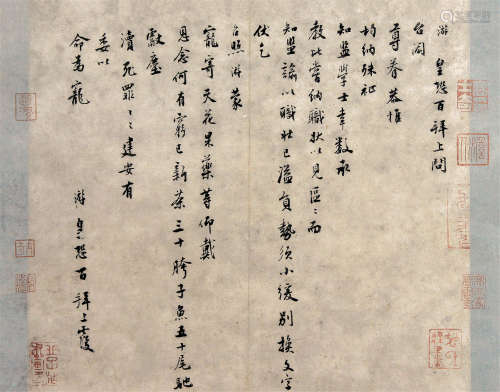 游 皇恐百拜上問
台閤
尊眷恭惟
均納殊祉
知監學士幸數承
教比嘗納職狀以見區〻而
知監諭以職狀已溢員勢須小緩別換文字
伏乞
台照游蒙
寵寄天花果藥等仰戴
恩念何有窮已新茶三十胯子魚五十尾馳
獻塵
瀆死罪〻〻建安有
委以
命為寵
游 皇恐百拜上覆